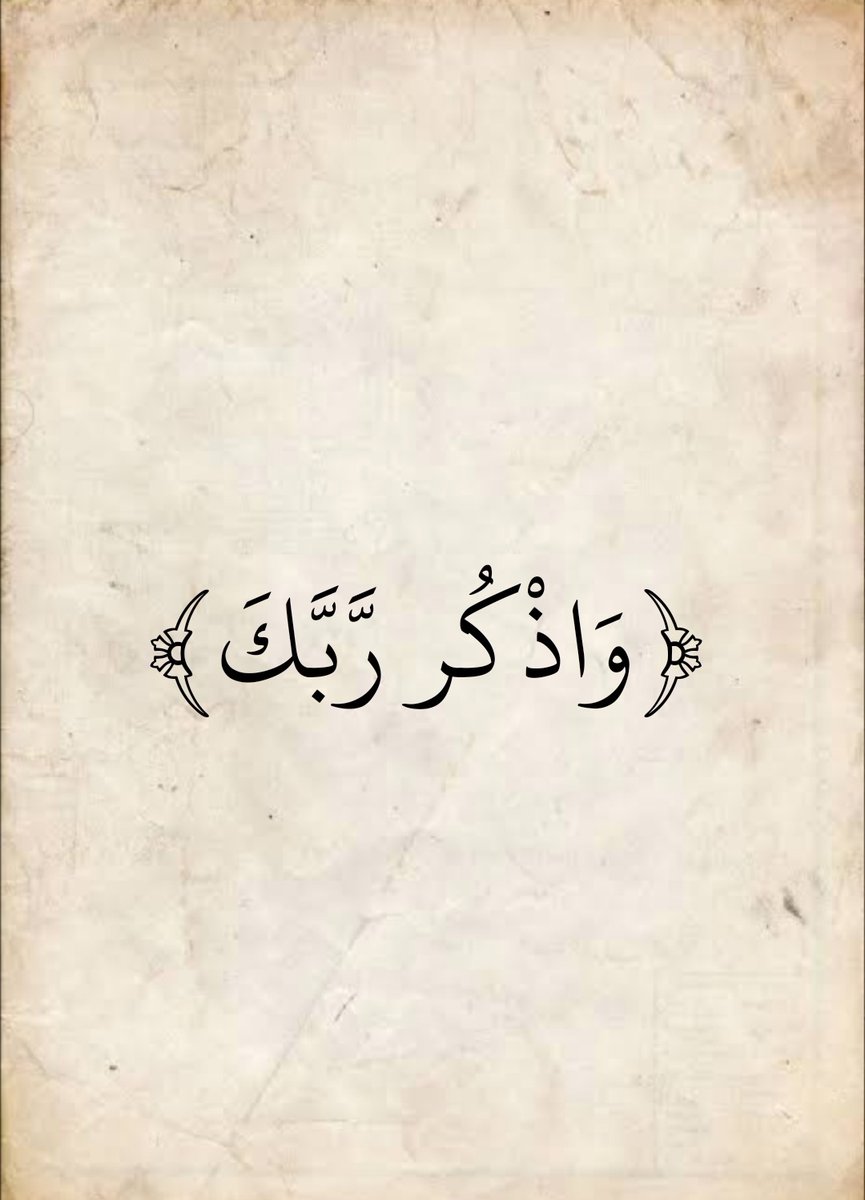 ﴿وَاذْكُر رَّبَّكَ﴾